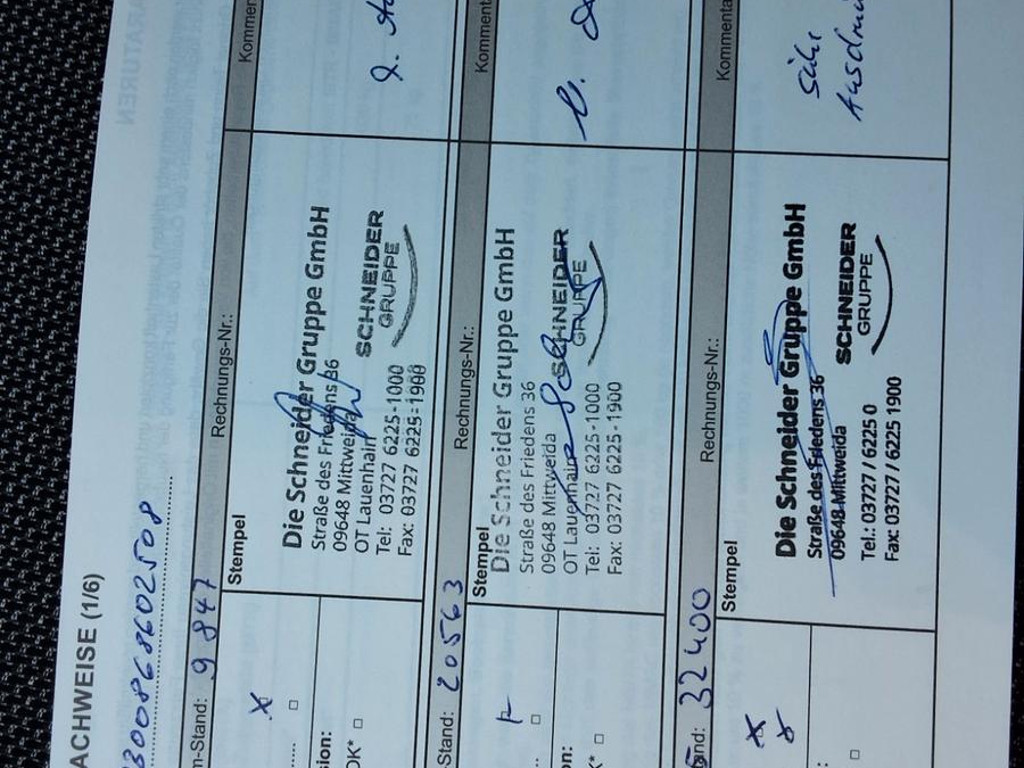 ACHWEISE (1/6)
ARATUREN
30086860 2508
m-Stand: 9 847 Rechnungs-Nr.: Kommen
Stempel
Die Schneider Gruppe GmbH
Straße des Friedens 36
09648 Mittweida
OT Lauenhain
Tel: 03727 6225-1000
Fax: 03727 6225-1900
SCHNEIDER
GRUPPE
sion:
OK*
Stand: 20563 Rechnungs-Nr.: Komment
Stempel
Die Schneider Gruppe GmbH
Straße des Friedens 36
09648 Mittweida
OT Lauenhain
Tel: 03727 6225-1000
Fax: 03727 6225-1900
SCHNEIDER
GRUPPE
on:
K*
and: 32400 Rechnungs-Nr.: Kommenta
Stempel
Die Schneider Gruppe GmbH
Straße des Friedens 36
09648 Mittweida
Tel.: 03727 / 6225 0
Fax: 03727 / 6225 1900
SCHNEIDER
GRUPPE
siehe
Ausdru